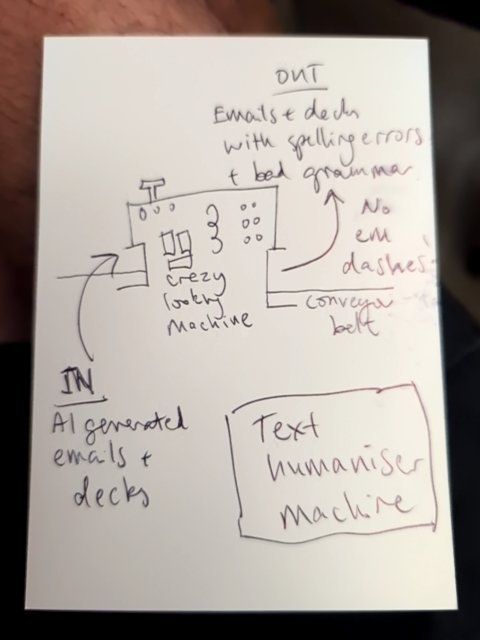 OUT
Emails + decks
with spelling errors
+ bad grammar
No
em
dashes
crezy
looking
machine
conveyor
belt
IN
AI generated
emails +
decks
Text
humaniser
machine